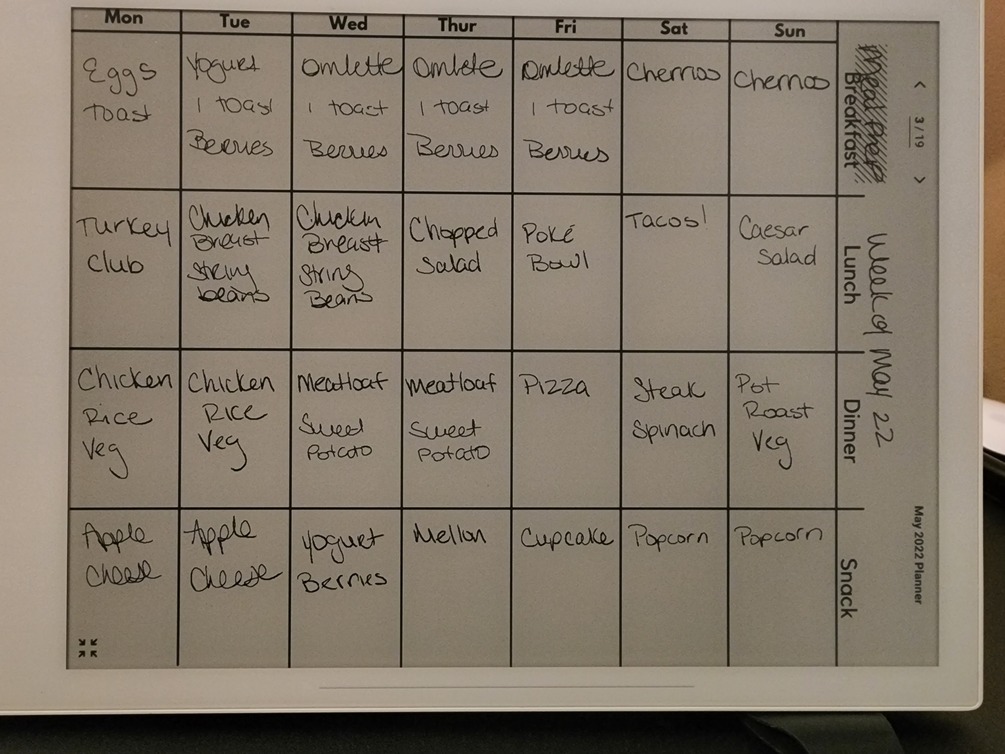 Mon Tue Wed Thur Fri Sat Sun
Eggs
Toast
Yogurt
1 toast
Berries
Omlette
1 toast
Berries
Omlete
1 toast
Berries
Omlette
1 toast
Berries
Cherrios
Cherrios
Breakfast
Turkey
Club
Chicken
Breast
String
beans
Chicken
Breast
String
Beans
Chopped
Salad
Poké
Bowl
Tacos!
Caesar
Salad
Lunch
Chicken
Rice
Veg
Chicken
Rice
Veg
Meatloaf
Sweet
Potato
Meatloaf
Sweet
Potato
Pizza
Steak
Spinach
Pot
Roast
Veg
Dinner
Apple
Cheese
Apple
Cheese
Yogurt
Berries
Mellon
Cupcake
Popcorn
Popcorn
Snack
Meal Prep
Week of May 22
< 3 / 19 >
May 2022 Planner